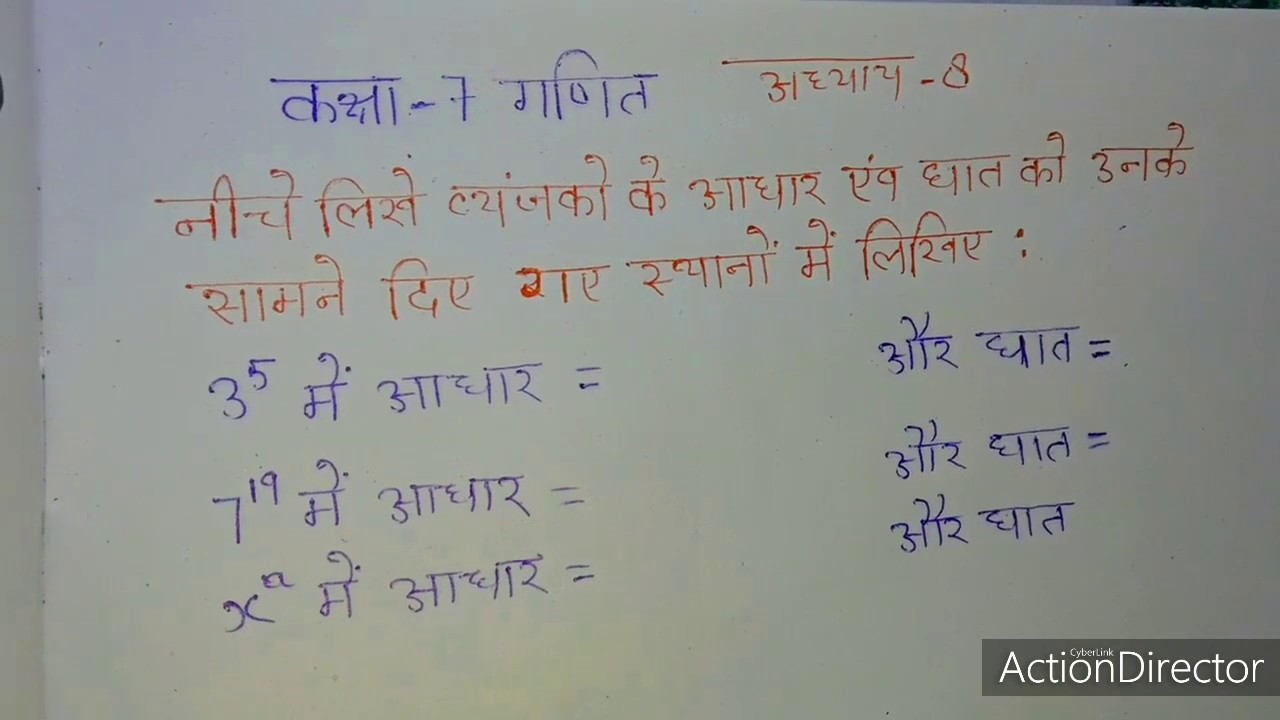 कक्षा - 7 गणित अध्याय - 8
नीचे लिखें व्यंजकों के आधार एंव घात को उनके
सामने दिए गए स्थानों में लिखिए :
3⁵ में आधार = और घात =
7¹⁹ में आधार = और घात =
xᵃ में आधार = और घात
CyberLink
ActionDirector